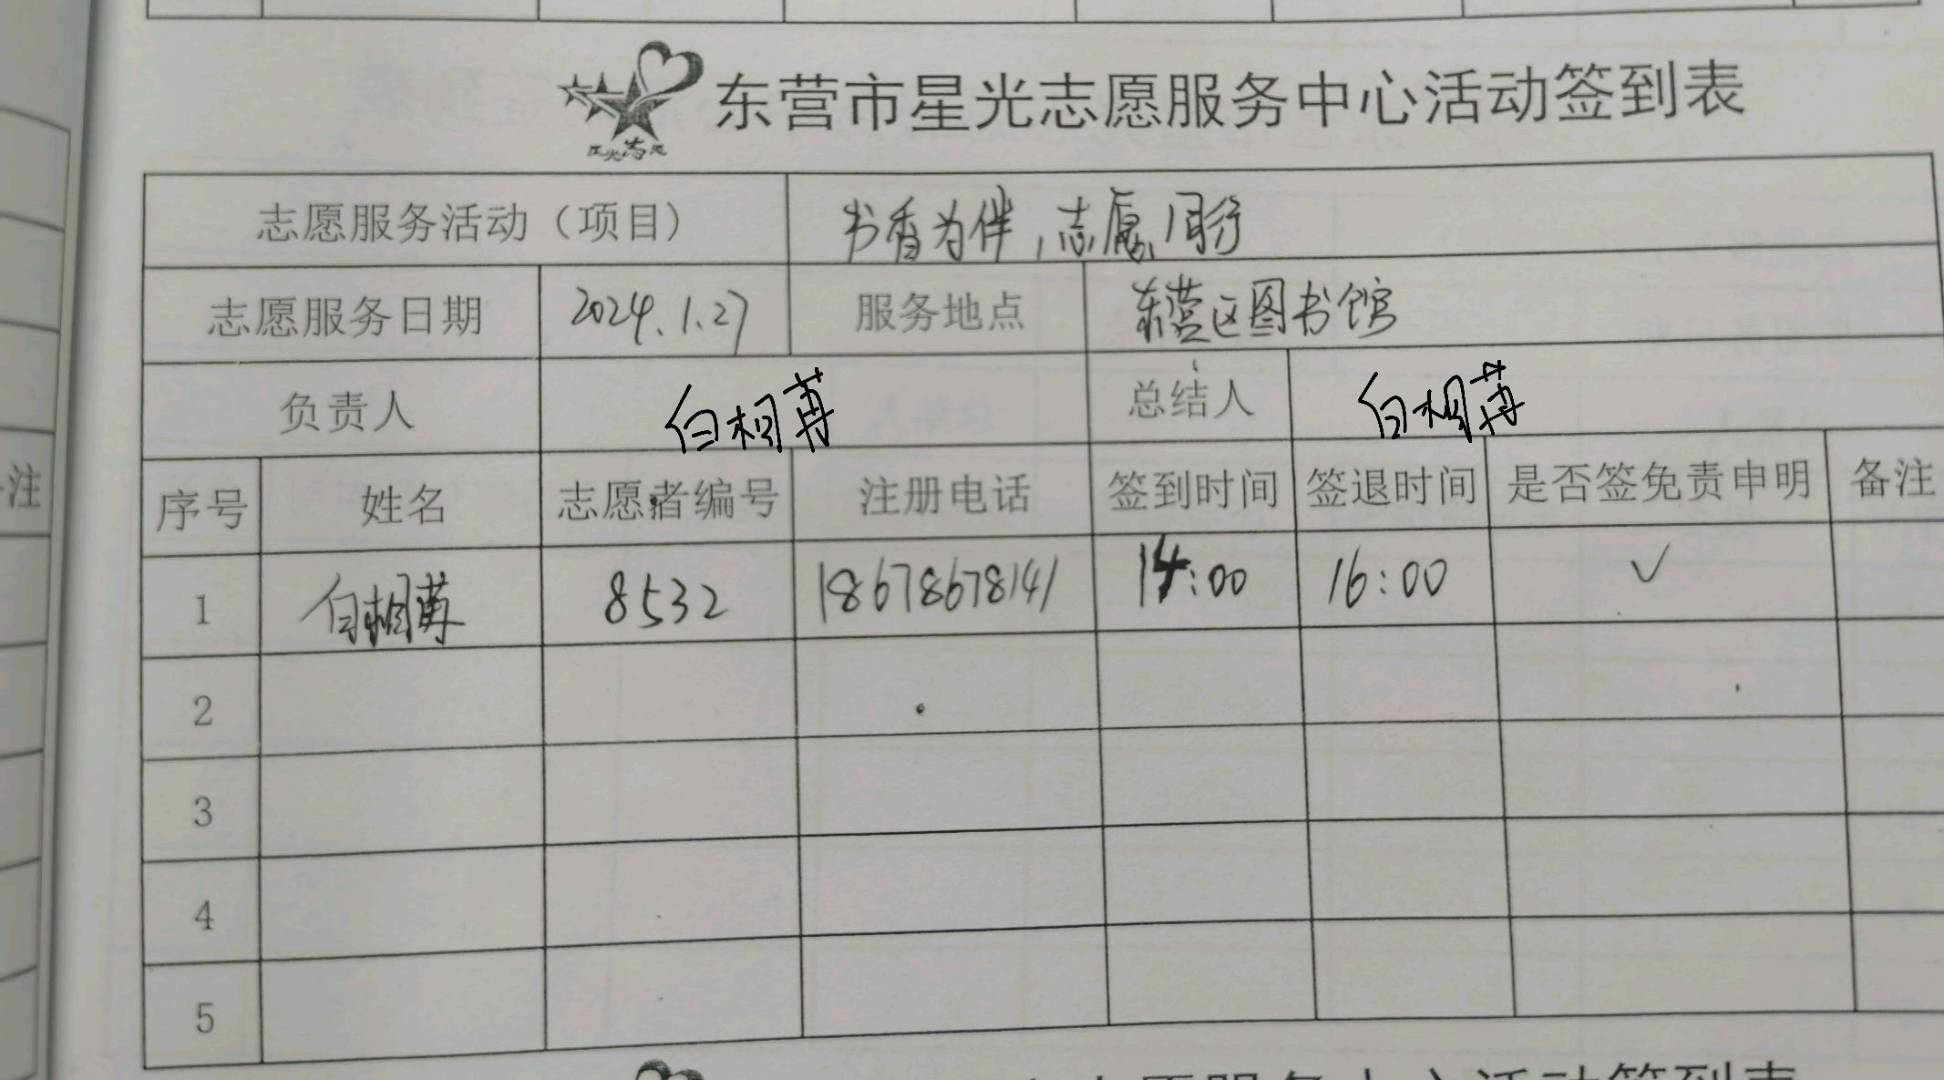 东营市星光志愿服务中心活动签到表
星光志愿
志愿服务活动（项目） 书香为伴，志愿同行
志愿服务日期 2024.1.27 服务地点 东营区图书馆
负责人 白相 总结人 白相
序号 姓名 志愿者编号 注册电话 签到时间 签退时间 是否签免责申明 备注
注
1 白相 8532 18678678141 14:00 16:00 ✓
2
3
4
5
活动签到表